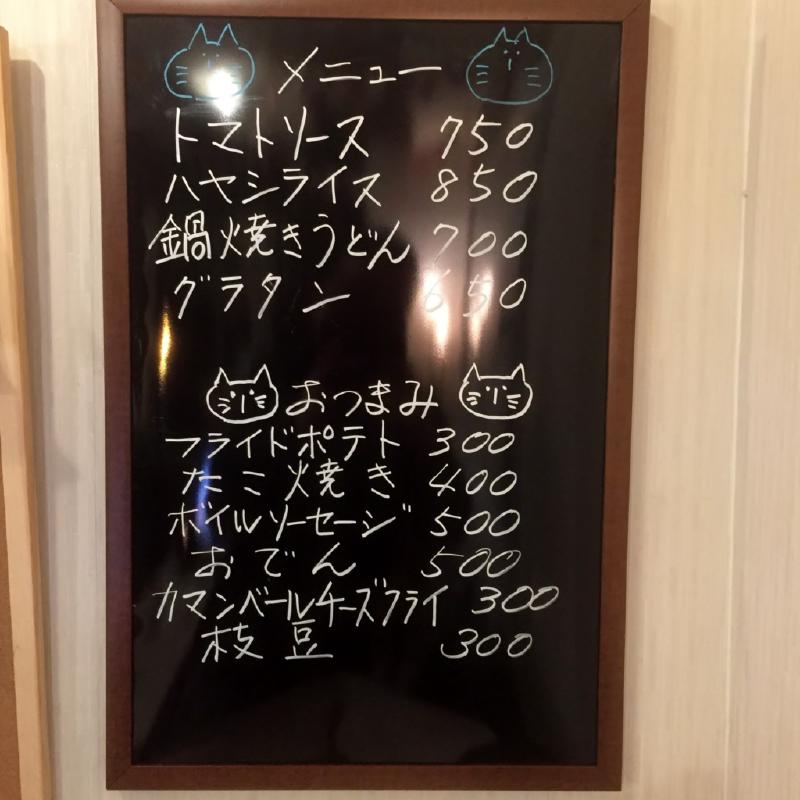 メニュー
トマトソース 750
ハヤシライス 850
鍋焼きうどん 700
グラタン 650
おつまみ
フライドポテト 300
たこ焼き 400
ボイルソーセージ 500
おでん 500
カマンベールチーズフライ 300
枝豆 300